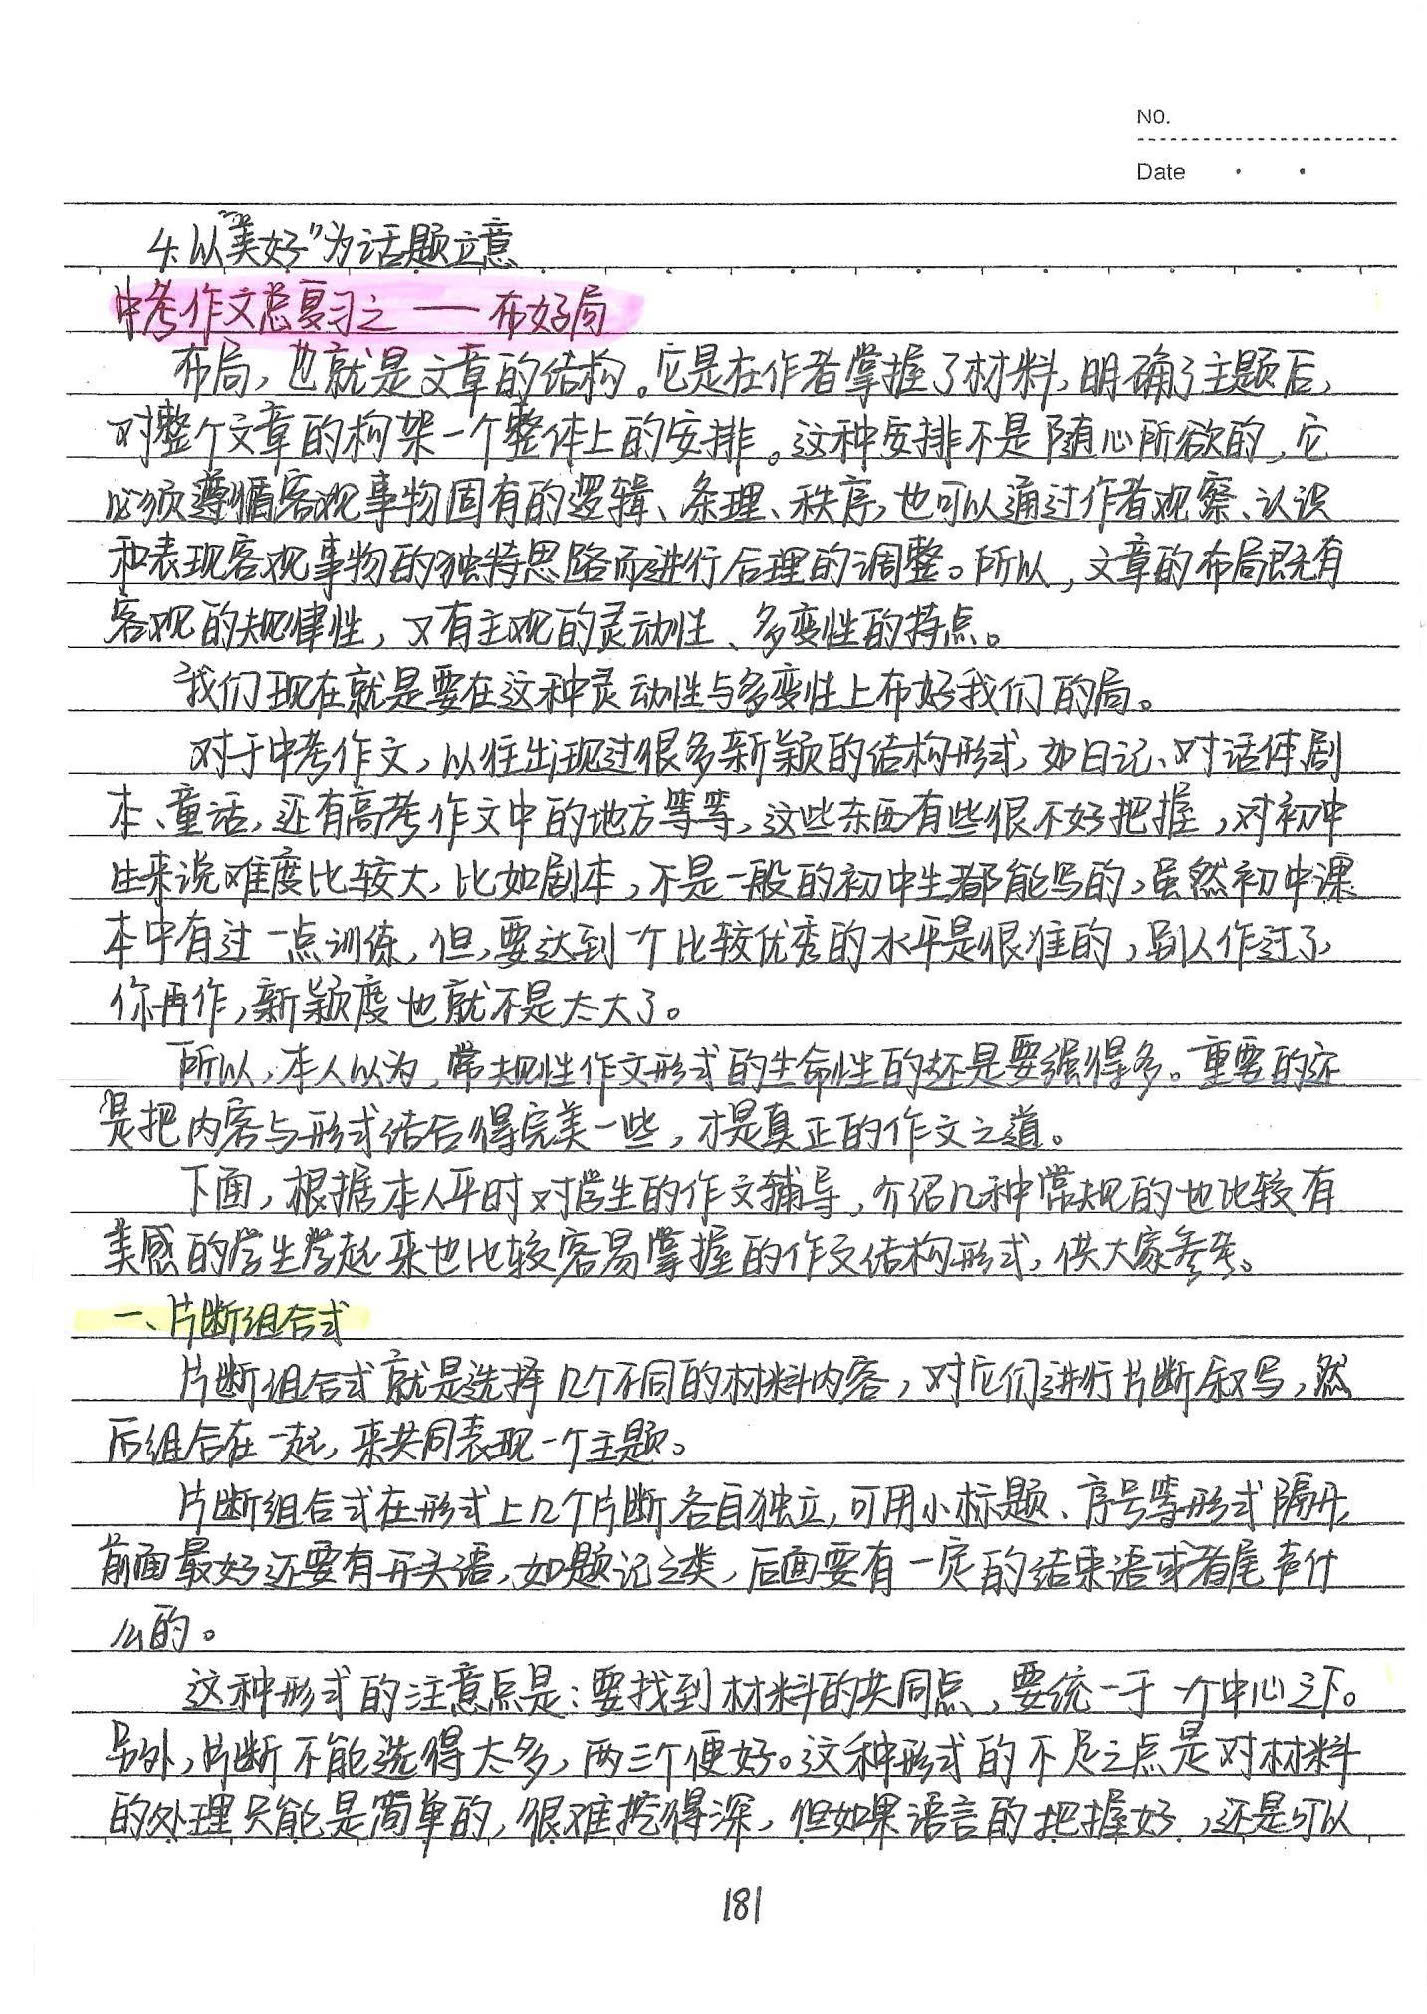 NO.
Date
4.以"美好"为话题立意
中考作文总复习之——布好局
布局,也就是文章的结构。它是在作者掌握了材料,明确了主题后,
对整个文章的构架一个整体上的安排。这种安排不是随心所欲的,它
必须遵循客观事物固有的逻辑、条理、秩序,也可以通过作者观察、认识
和表现客观事物的独特思路而进行合理的调整。所以,文章的布局既有
客观的规律性,又有主观的灵动性、多变性的特点。
我们现在就是要在这种灵动性与多变性上布好我们的局。
对于中考作文,以往出现过很多新颖的结构形式,如日记、对话体剧
本、童话,还有高考作文中的地方等等,这些东西有些很不好把握,对初中
生来说难度比较大,比如剧本,不是一般的初中生都能写的,虽然初中课
本中有过一点训练,但,要达到一个比较优秀的水平是很难的,别人作过了,
你再作,新颖度也就不是太大了。
所以,本人以为,常规性作文形式的生命性的还是要强得多。重要的还
是把内容与形式结合得完美一些,才是真正的作文之道。
下面,根据本人平时对学生的作文辅导,介绍几种常规的也比较有
美感的学生学起来也比较容易掌握的作文结构形式,供大家参考。
一、片断组合式
片断组合式就是选择几个不同的材料内容,对它们进行片断叙写,然
后组合在一起,来共同表现一个主题。
片断组合式在形式上几个片断各自独立,可用小标题、序号等形式隔开,
前面最好还要有开头语,如题记之类,后面要有一定的结束语或者尾声什
么的。
这种形式的注意点是:要找到材料的共同点,要统一于一个中心之下。
另外,片断不能选得太多,两三个便好。这种形式的不足之点是对材料
的处理只能是简单的,很难挖得深,但如果语言的把握好,还是可以
181